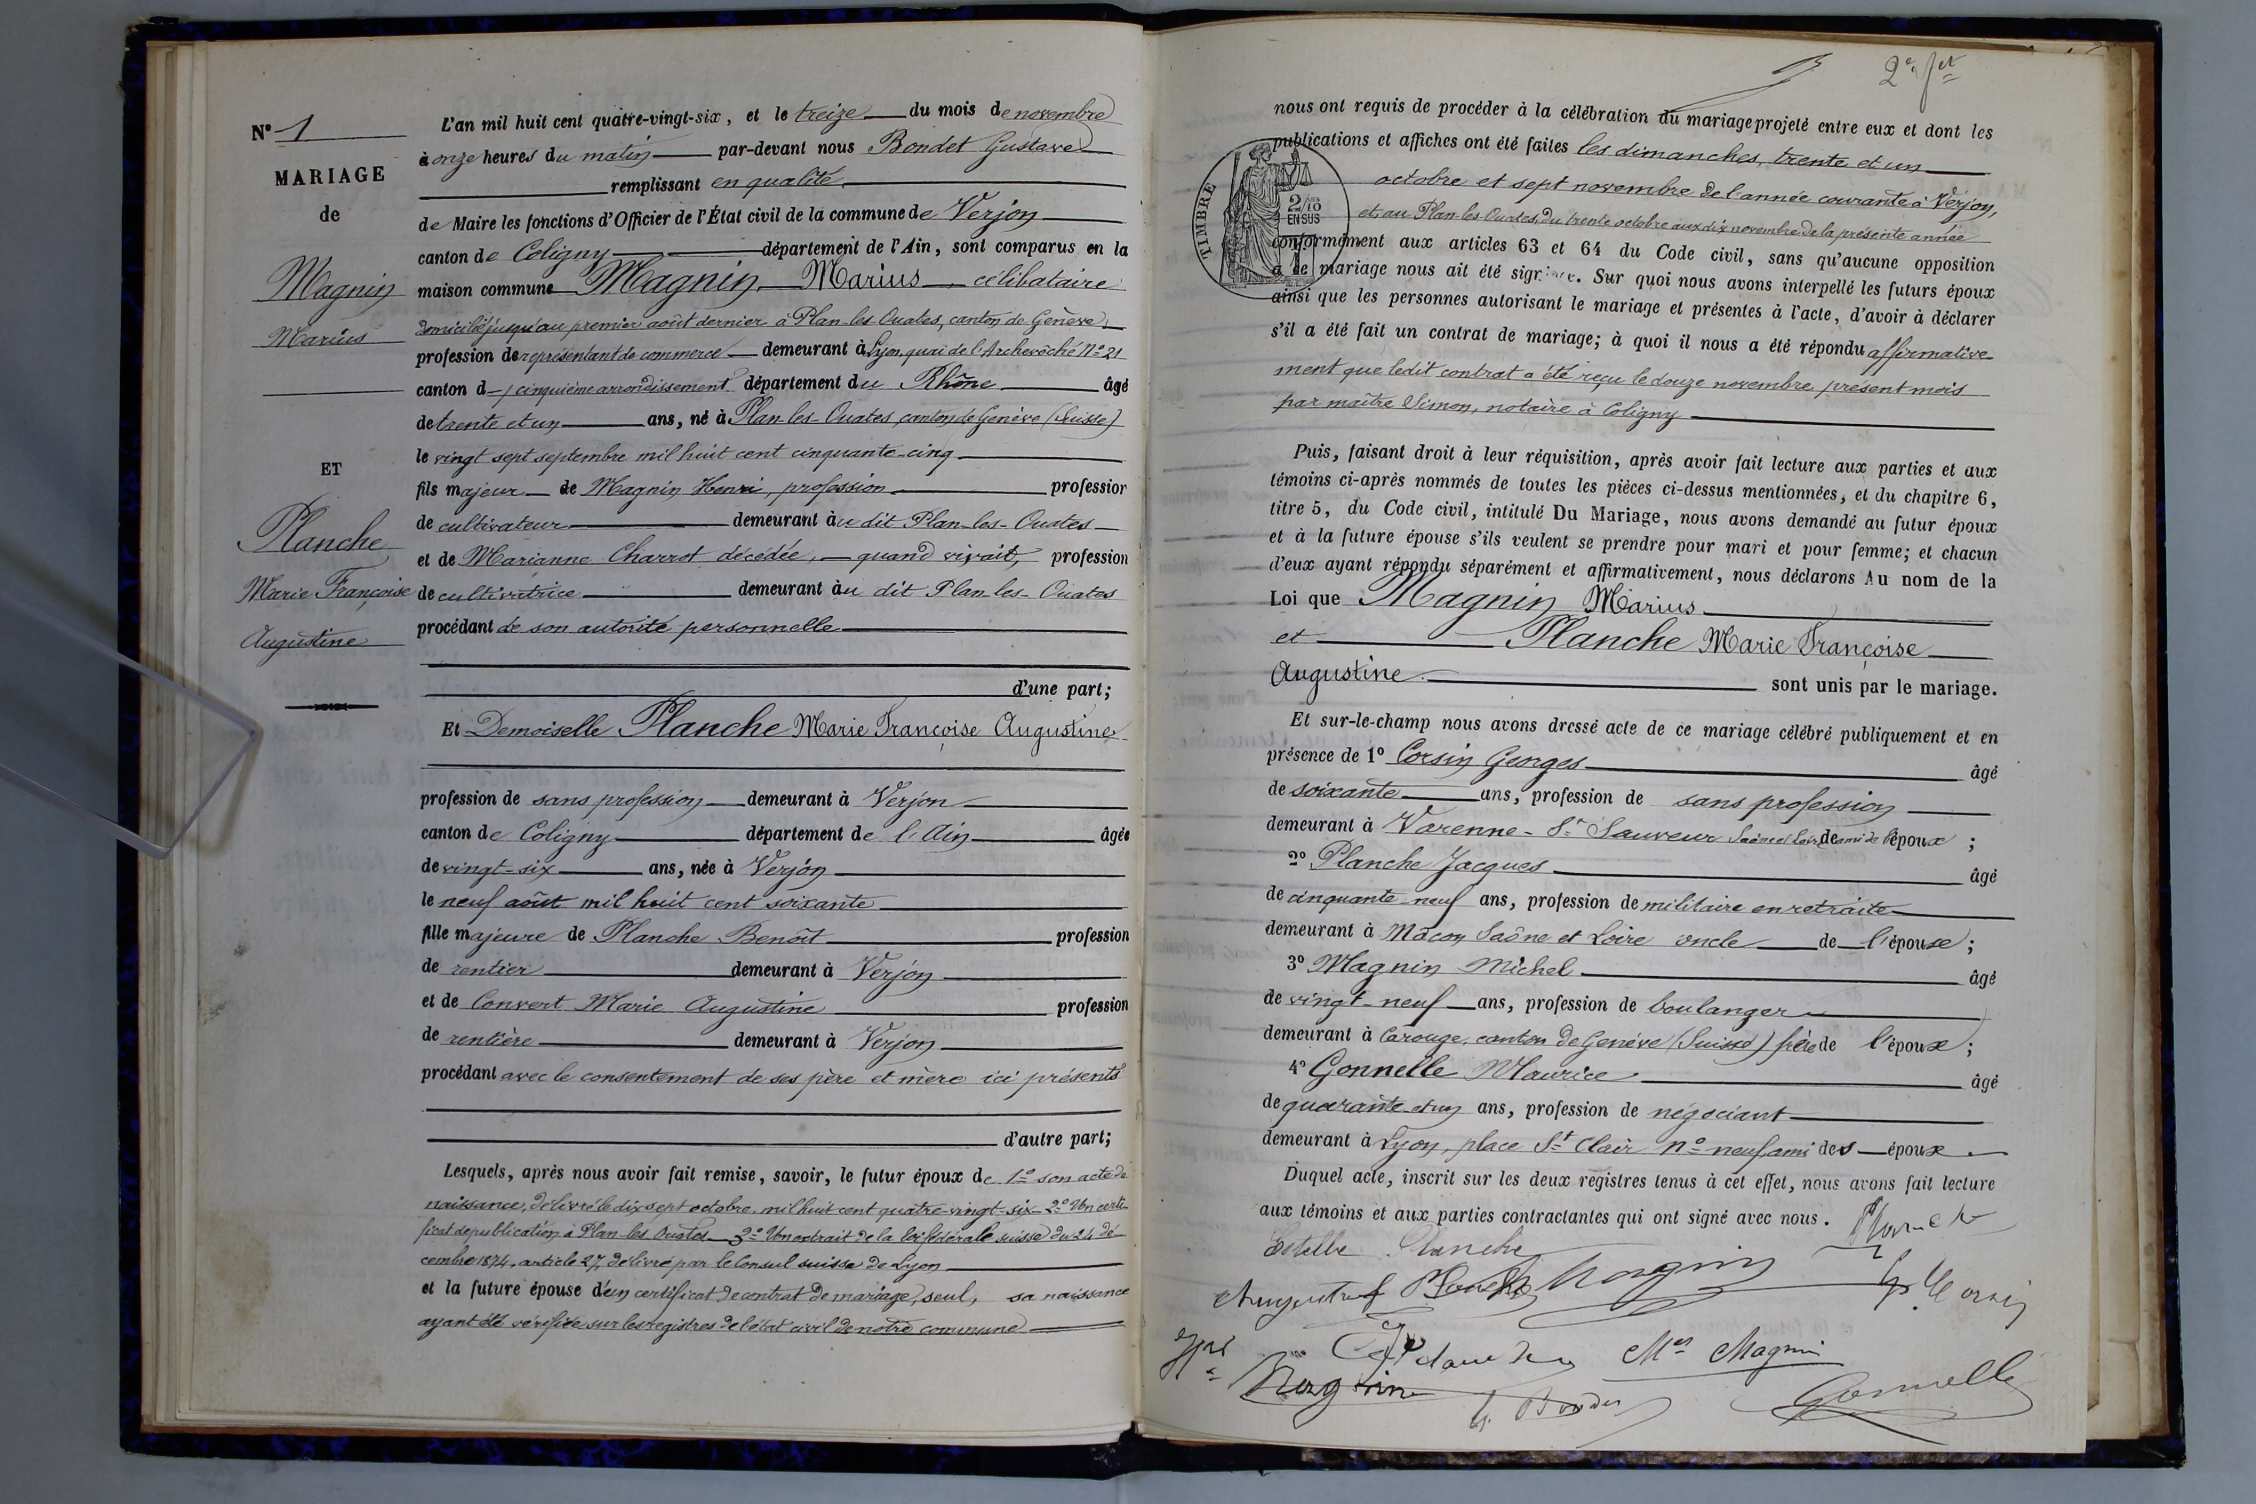 N° 1
MARIAGE
de
Magnin
Marius
ET
Planche
Marie Françoise
Augustine
L'an mil huit cent quatre-vingt-six, et le treize du mois de novembre
à onze heures du matin par-devant nous Bondet Gustave
remplissant en qualité
de Maire les fonctions d'Officier de l'État civil de la commune de Verjon
canton de Coligny département de l'Ain, sont comparus en la
maison commune Magnin Marius célibataire
domicilié jusqu'au premier août dernier à Plan-les-Ouates, canton de Genève,
profession de représentant de commerce demeurant à Lyon, quai de l'Archevêché N° 21
canton d cinquième arrondissement département du Rhône âgé
de trente et un ans, né à Plan-les-Ouates, canton de Genève (Suisse)
le vingt sept septembre mil huit cent cinquante-cinq
fils majeur de Magnin Henri, profession profession
de cultivateur demeurant au dit Plan-les-Ouates
et de Marianne Charrot décédée, quand vivait, profession
de cultivatrice demeurant au dit Plan-les-Ouates
procédant de son autorité personnelle
d'une part;
Et Demoiselle Planche Marie Françoise Augustine
profession de sans profession demeurant à Verjon
canton de Coligny département de l'Ain âgée
de vingt-six ans, née à Verjon
le neuf août mil huit cent soixante
fille majeure de Planche Benoît profession
de rentier demeurant à Verjon
et de Convert Marie Augustine profession
de rentière demeurant à Verjon
procédant avec le consentement de ses père et mère ici présents
d'autre part;
Lesquels, après nous avoir fait remise, savoir, le futur époux de 1° son acte de
naissance, délivré le dix sept octobre mil huit cent quatre-vingt-six 2° Un certi-
ficat de publication à Plan-les-Ouates 3° Un extrait de la loi fédérale suisse du 24 dé-
cembre 1874, article 27, délivré par le Consul suisse de Lyon
et la future épouse d'un certificat de contrat de mariage, seul, sa naissance
ayant été vérifiée sur les registres de l'état civil de notre commune
2e fet
nous ont requis de procéder à la célébration du mariage projeté entre eux et dont les
publications et affiches ont été faites les dimanches, trente et un
octobre et sept novembre de l'année courante à Verjon,
et au Plan-les-Ouates, du trente octobre aux dix novembre de la présente année
TIMBRE
2/10
EN SUS
conformément aux articles 63 et 64 du Code civil, sans qu'aucune opposition
à ce mariage nous ait été signifiée. Sur quoi nous avons interpellé les futurs époux
ainsi que les personnes autorisant le mariage et présentes à l'acte, d'avoir à déclarer
s'il a été fait un contrat de mariage; à quoi il nous a été répondu affirmative-
ment que ledit contrat a été reçu le douze novembre présent mois
par maître Simon, notaire à Coligny
Puis, faisant droit à leur réquisition, après avoir fait lecture aux parties et aux
témoins ci-après nommés de toutes les pièces ci-dessus mentionnées, et du chapitre 6,
titre 5, du Code civil, intitulé Du Mariage, nous avons demandé au futur époux
et à la future épouse s'ils veulent se prendre pour mari et pour femme; et chacun
d'eux ayant répondu séparément et affirmativement, nous déclarons Au nom de la
Loi que Magnin Marius
et Planche Marie Françoise
Augustine sont unis par le mariage.
Et sur-le-champ nous avons dressé acte de ce mariage célébré publiquement et en
présence de 1° Corsin Georges âgé
de soixante ans, profession de sans profession
demeurant à Varenne-St Sauveur Saône et Loire de ami de l'époux;
2° Planche Jacques âgé
de cinquante-neuf ans, profession de militaire en retraite
demeurant à Mâcon Saône et Loire oncle de l'épouse;
3° Magnin Michel âgé
de vingt-neuf ans, profession de boulanger
demeurant à Carouge, canton de Genève (Suisse) frère de l'époux;
4° Gonnelle Maurice âgé
de quarante et un ans, profession de négociant
demeurant à Lyon, place St Clair N° neuf ami des époux
Duquel acte, inscrit sur les deux registres tenus à cet effet, nous avons fait lecture
aux témoins et aux parties contractantes qui ont signé avec nous. Planche
Estelle Planche
Augustine Planche Magnin G. Corsin
Mel Magnin
Magnin G. Bondet Gonnelle